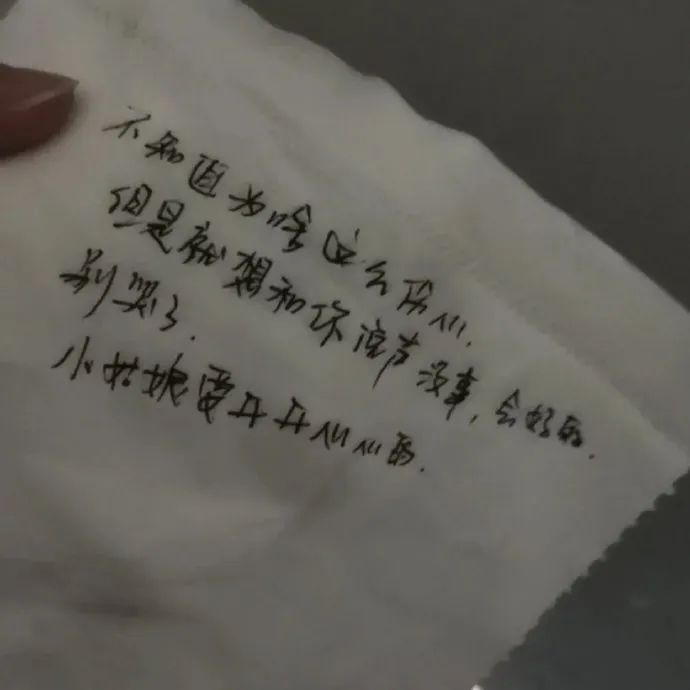 不知道为啥这么伤心.
但是就想和你说声没事,会好的.
别哭了.
小姑娘要开开心心的.